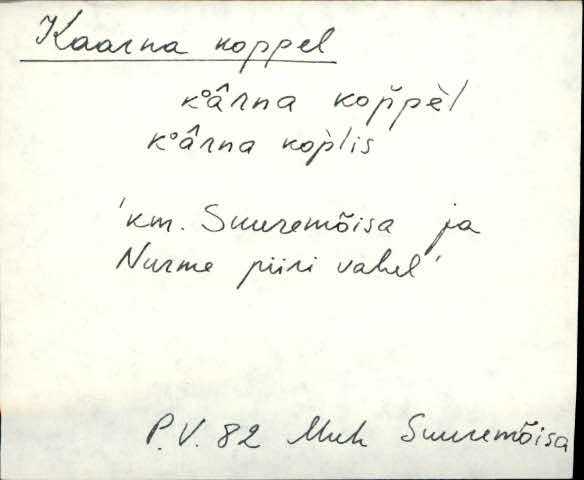 Kaarna koppel
k°ârna kop̆pèl
k°ârna kop̀lis
'km. Suuremõisa ja
Nurme piiri vahel'
P.V. 82 Muh Suuremõisa